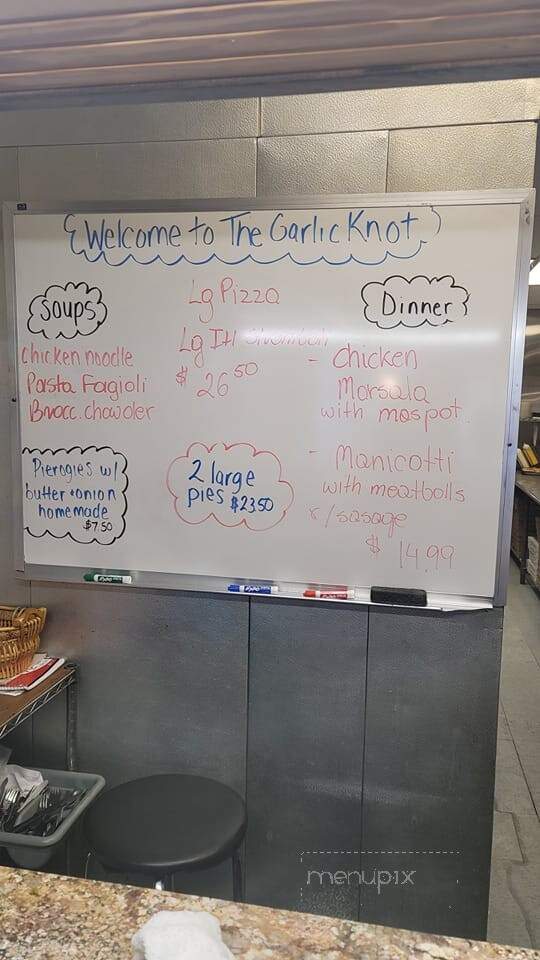 Welcome to The Garlic Knot
Soups
Chicken noodle
Pasta Fagioli
Brocc. chowder
Pierogies w/
butter + onion
homemade
$7.50
Lg Pizza
Lg Itl Stromboli
$ 26 50
2 large
pies $23.50
Dinner
- Chicken
Marsala
with maspot.
- Manicotti
with meatballs
r/sasage
$ 14.99
EXPO
EXPO
EXPO
menupix